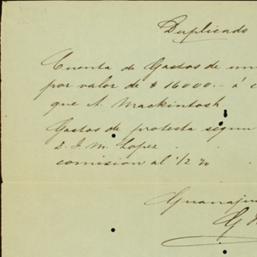 Duplicado
Cuenta de Gastos de un
por valor de $ 16000.- á
que A. Mackintosh
Gastos de protesta segun
D. J. M. Lopez
comision al 1/2 %
Guanaju
G